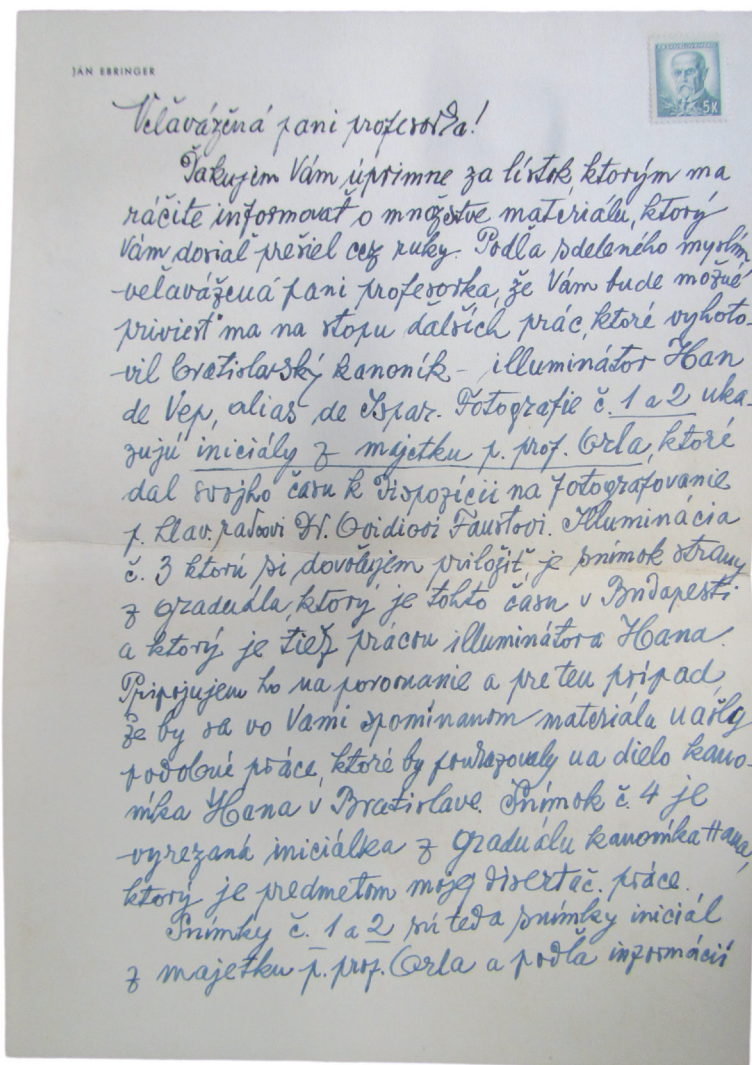 JÁN EBRINGER
ČESKOSLOVENSKO
5K
Veľavážená pani profesorka!
Ďakujem Vám úprimne za lístok, ktorým ma
ráčite informovať o množstve materiálu, ktorý
Vám dosiaľ prešiel cez ruky. Podľa sdeleného myslím
veľavážená pani profesorka, že Vám bude možné
priviesť ma na stopu ďalších prác, ktoré vyhoto-
vil bratislavský kanoník - illuminátor Han
de Vep, alias de Ispar. Fotografie č. 1 a 2 uka-
zujú iniciály z majetku p. prof. Orla, ktoré
dal svojho času k dispozícii na fotografovanie
p. hlav. radcovi Dr. Ovidiovi Faustovi. Illuminácia
č. 3 ktorú si dovoľujem priložiť, je snímok strany
z graduála, ktorý je tohto času v Budapešti
a ktorý je tiež prácou illuminátora Hana.
Pripojujem ho na porovnanie a pre ten prípad,
že by sa vo Vami spomínanom materiále našly
podobné práce, ktoré by poukazovaly na dielo kano-
níka Hana v Bratislave. Snímok č. 4 je
vyrezaná iniciálka z graduálu kanoníka Hana,
ktorý je predmetom mojej disertač. práce.
Snímky č. 1 a 2 sú teda snímky iniciál
z majetku p. prof. Orla a podľa informácií